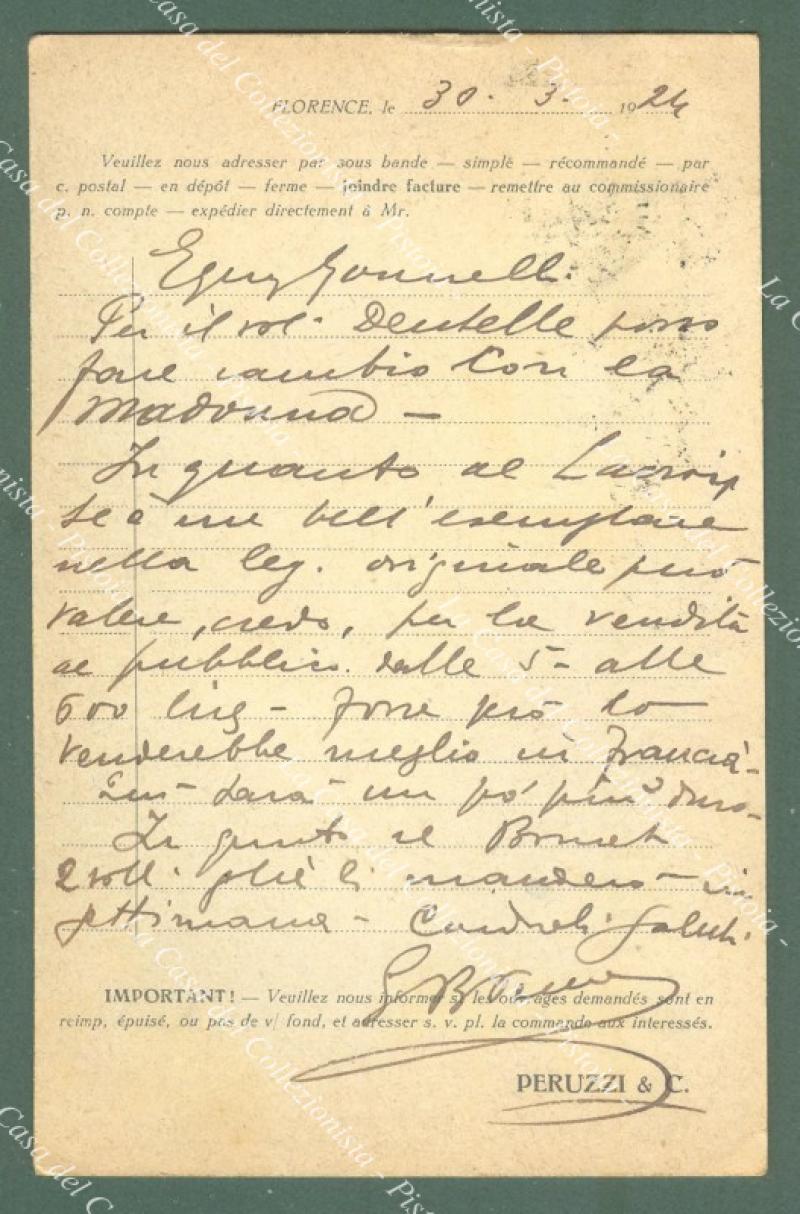 FLORENCE, le 30 - 3 - 1924
Veuillez nous adresser par sous bande — simple — récommandé — par
c. postal — en dépôt — ferme — joindre facture — remettre au commissionaire
p. n. compte — expédier directement à Mr.
Gonnelli.
Per il vol. Dentelle posso
fare cambio con la
Madonna —
In quanto al Lacroix
se è un bell'esemplare
nella leg. originale può
valere, credo, per la vendita
al pubblico dalle 5 - alle
600 lire - forse però lo
venderebbe meglio in Francia -
sarà un pò più duro -
In quanto al Brunet
2 voll. gliè li manderò in
settimana - Cordiali Saluti
IMPORTANT! — Veuillez nous informer si les ouvrages demandés sont en
reimp, épuisé, ou pas de v/ fond, et adresser s. v. pl. la commande aux interessés.
PERUZZI & C.
La Casa del Collezionista - Pistoia -